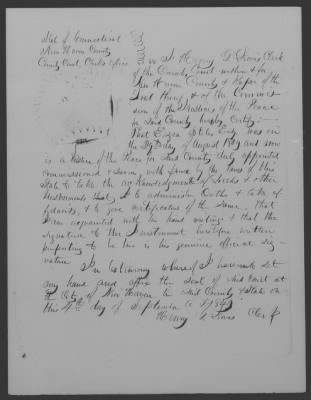 State of Connecticut
New Haven County
County Court, Clerks Office
I Henry Clerk
of the County Court within & for
New Haven County & Keeper of the
Seal thereof & of the Commis
sion of the Justices of the Peace
for said County hereby Certify
that Ezra Stiles Esq was on
the day of August and now
is a Justice of the Peace for said County duly appointed
Commissioned & Sworn, with power by the laws of this
State to take the acknowledgments of Deeds & other
Instruments & to administer Oaths & take af
fidavits, & to give certificates of the same. that
I am acquainted with his hand writing & that the
signature to the Instrument herein written
purporting to be his is his genuine official sig
nature
In testimony whereof I hereunto set
my hand and affix the seal of said Court at
the City of New Haven in said County & State on
this 4th day of September
Henry Clerk